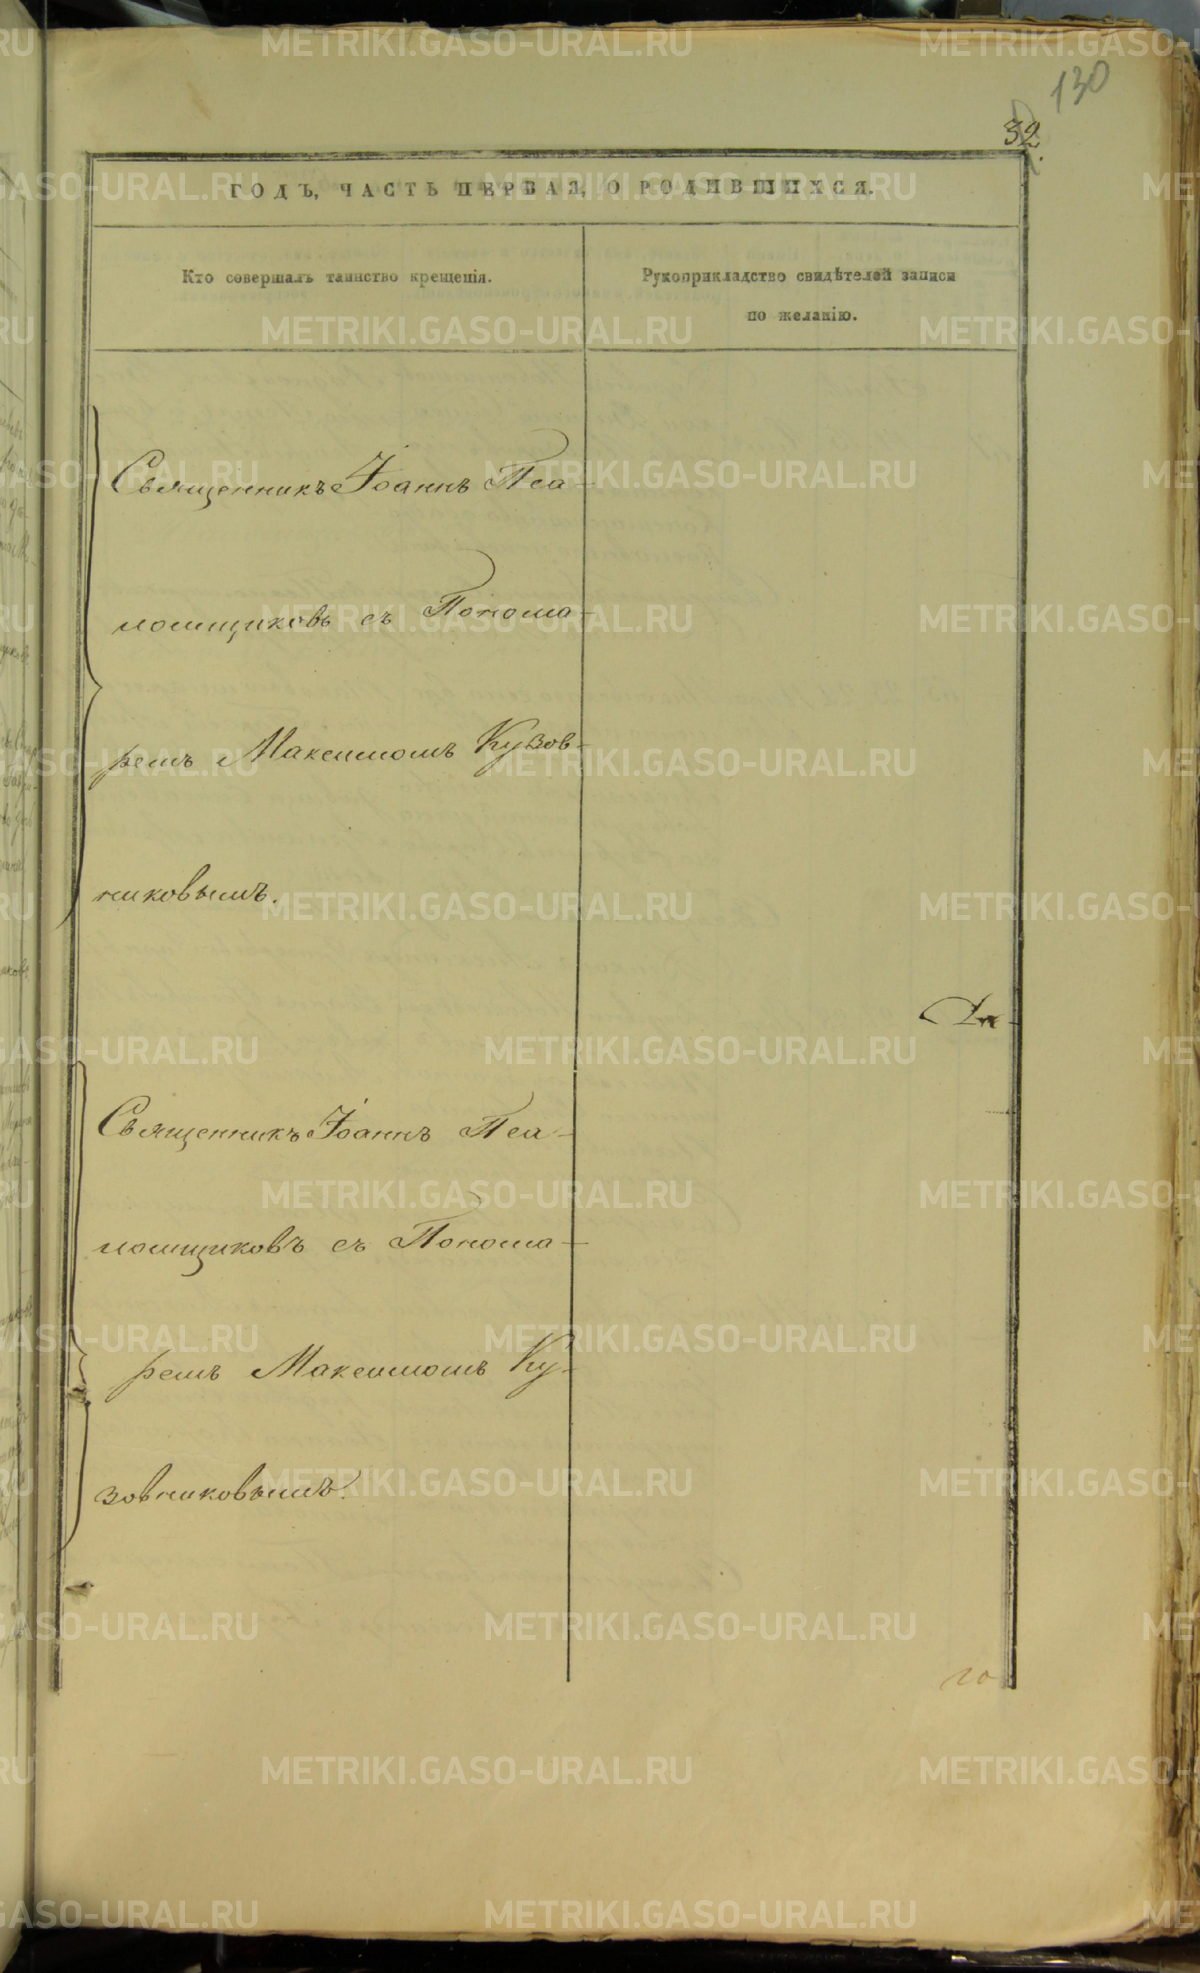 130
32
ГОДЪ, ЧАСТЬ ПЕРВАЯ, О РОДИВШИХСЯ.
Кто совершалъ таинство крещенія.
Рукоприкладство свидѣтелей записи
по желанію.
Священникъ Іоаннъ Пса-
ломщиковъ съ Понома-
ремъ Максимомъ Кузов-
никовымъ.
Священникъ Іоаннъ Пса-
ломщиковъ съ Понома-
ремъ Максимомъ Ку-
зовниковымъ.
METRIKI.GASO-URAL.RU